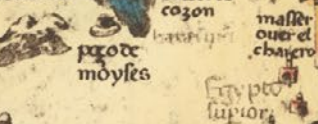 cozon
masser
ouer el
chaxero
poço de
moyses
Egypto
supior